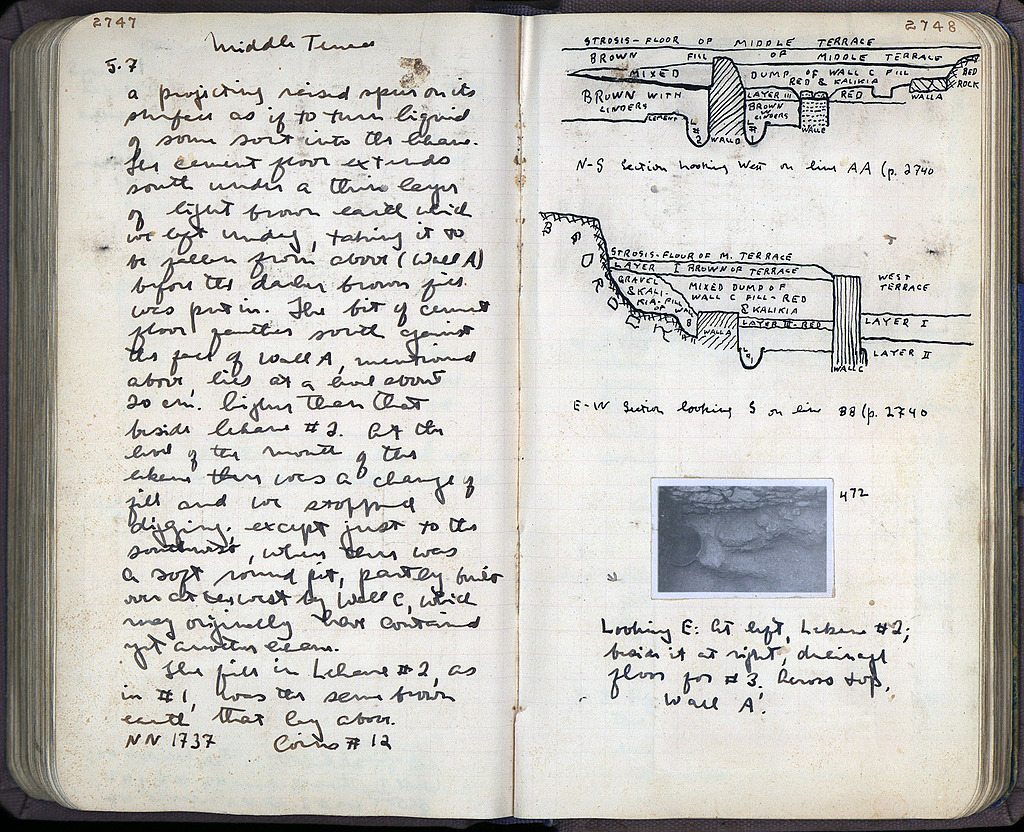 2747
Middle Terrace
5.7
a projecting raised spur on its
surface as if to turn liquid
of some sort into the lekane.
The cement floor extends
south under a thin layer
of light brown earth which
we left undug, taking it to
be fallen from above (Wall A)
before the darker brown fill
was put in. The bit of cement
floor further south against
the face of Wall A, mentioned
above, lies at a level about
20 cm. higher than that
beside lekane #2. At the
level of the mouth of the
lekane there was a change of
fill and we stopped
digging, except just to the
southwest, where there was
a soft round pit, partly built
over at the west by Wall C, which
may originally have contained
yet another lekane.
The fill in Lekane #2, as
in #1, was the same brown
earth that lay above.
NN 1737 Coins #12
2748
STROSIS-FLOOR OF MIDDLE TERRACE
BROWN FILL OF MIDDLE TERRACE
MIXED DUMP OF WALL C FILL
RED & KALIKIA
BED
ROCK
BROWN WITH
CINDERS
LAYER III
RED
WALL A
BROWN
W
CINDERS
CEMENT
L#2
WALL D
L#1
WALL E
N-S Section looking West on line AA (p. 2740
STROSIS-FLOUR OF M. TERRACE
LAYER I BROWN OF TERRACE
GRAVEL
& KALI-
KIA-FILL
OF WALL
B
MIXED DUMP OF
WALL C FILL-RED
& KALIKIA
WEST
TERRACE
WALL A
LAYER III-RED
LAYER I
L#1
WALL C
LAYER II
E-W Section looking S on line BB (p. 2740
472
Looking E: At left, Lekane #2;
beside it at right, drainage
floor for #3. Across top,
Wall A.